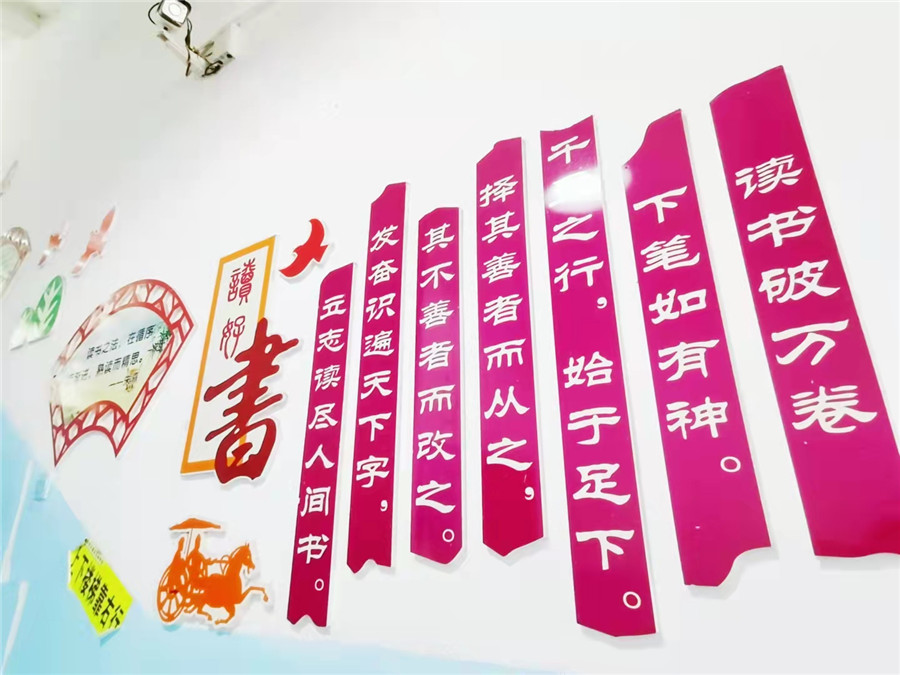 读书破万卷
下笔如有神。
千 之行，始于足下。
择其善者而从之，
其不善者而改之。
发奋识遍天下字，
立志读尽人间书。
讀好
書
读书之法，在循序
进，熟读而精思。